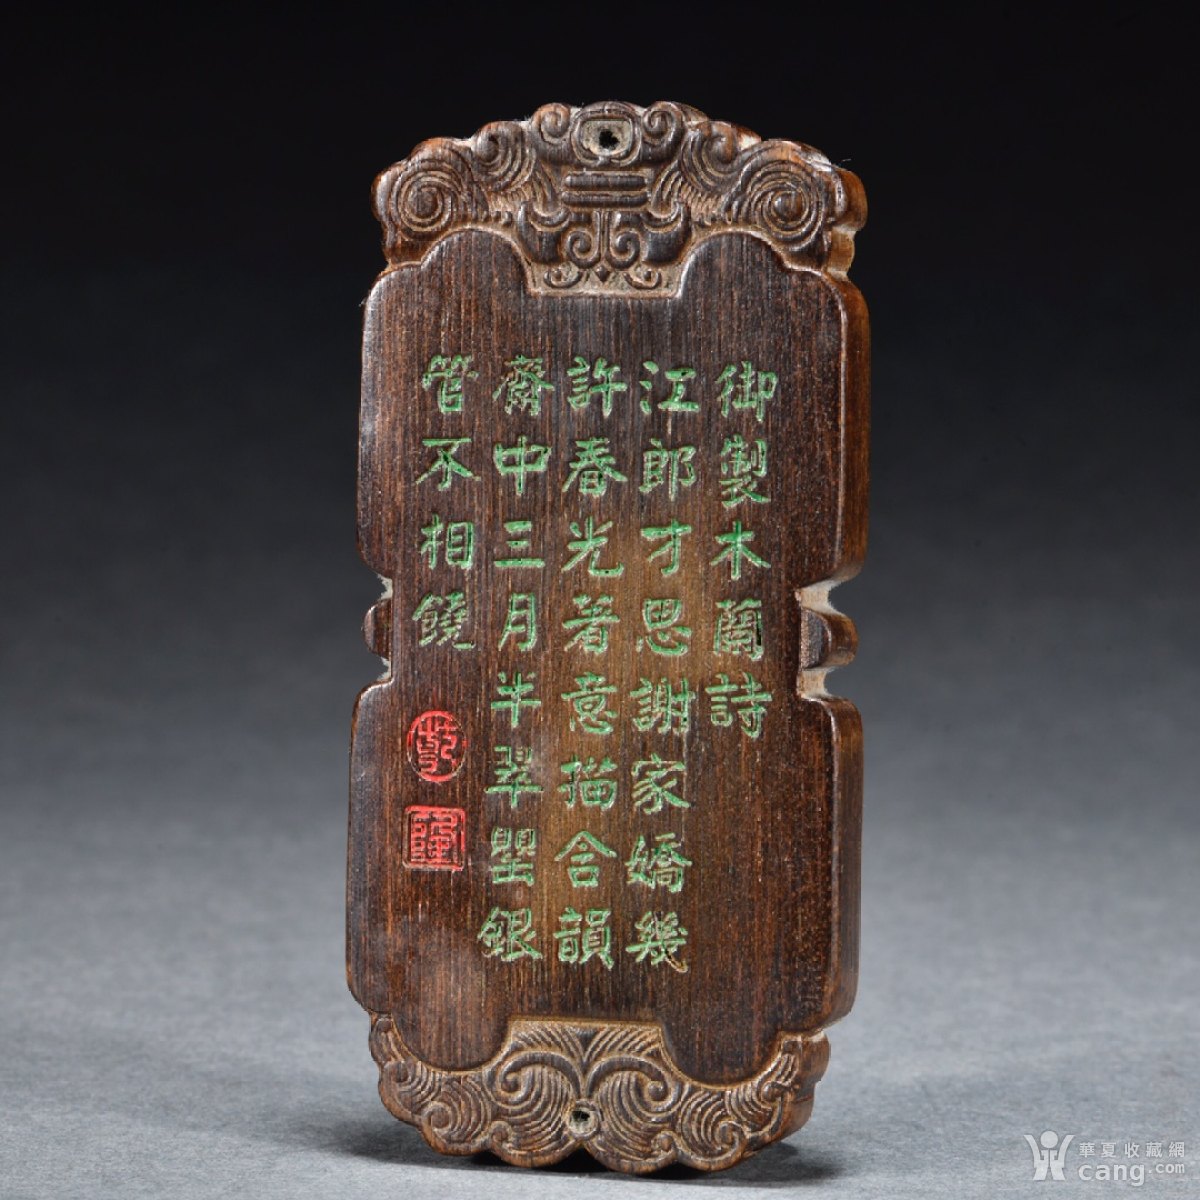 御製木蘭詩
江郎才思謝家嬌幾
許春光著意描含韻
齋中三月半翠罌銀
管不相饒
乾
隆
華夏收藏網
cang.com